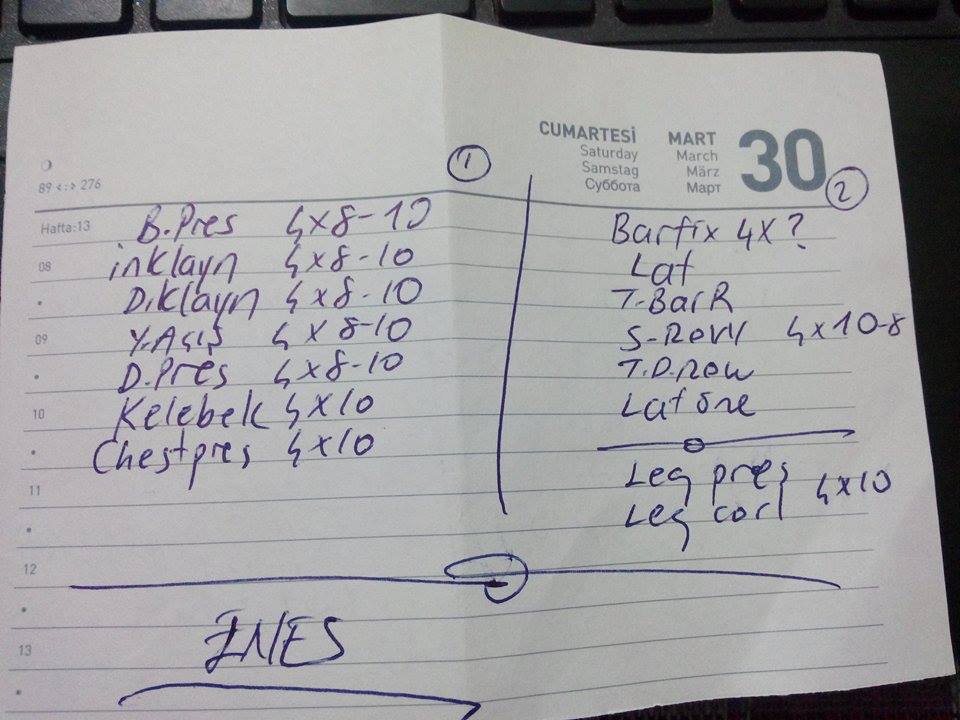 CUMARTESİ MART 30
Saturday March
Samstag März
Суббота Март
89 <:> 276
1
2
Hafta:13
B.Pres 4x8-10
inklayn 4x8-10
D.klayn 4x8-10
Y.Açış 4x8-10
D.Pres 4x8-10
Kelebek 4x10
Chestpres 4x10
Barfix 4x?
Lat
T-BarR
S-Rovv 4x10-8
T.D.Row
Lat öne
Leg pres 4x10
Leg corl
08
09
10
11
12
13
ENES